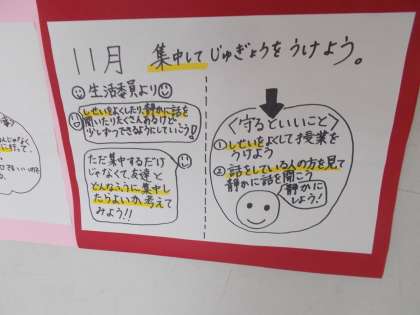 11月 集中してじゅぎょうをうけよう。
生活委員より
しせいをよくしたり、静かに話を
聞いたりたくさんあるけど、
少しずつできるようにしていこう!
ただ集中するだけ
じゃなくて、友達と
どんなふうに集中し
たらよいか、考えて
みよう!!
<守るといいこと>
①しせいをよくして授業を
うけよう
②話をしている人の方を見て
静かに話を聞こう
静かに
しよう!